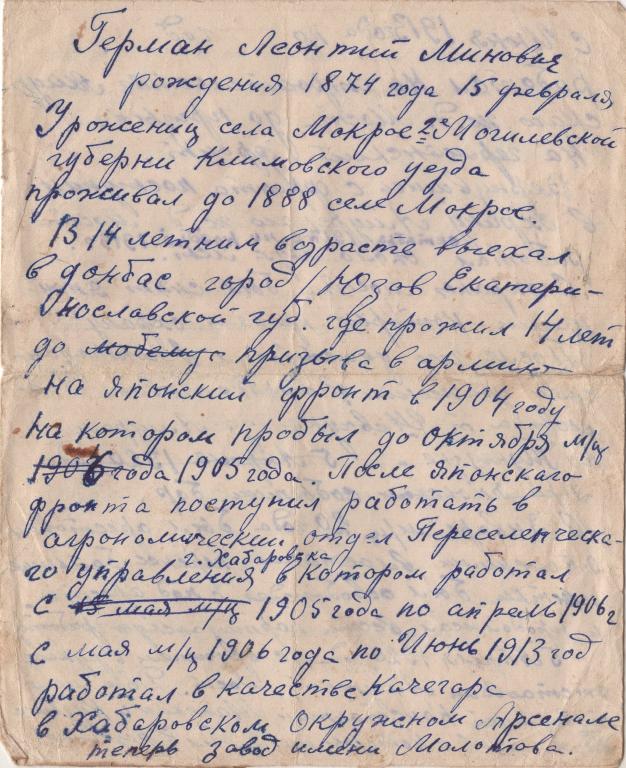 Герман Леонтий Минович
рождения 1874 года 15 февраля
Урожениц села Мокрое 2е Могилевской
губерни Климовского уезда
проживал до 1888 селе Мокрое.
В 14 летним возрасте выехал
в донбас город Юзов Екатери-
нославской губ. где прожил 14 лет
до призыва в армию
на Японский фронт в 1904 году
на котором пробыл до октября м/ц
1906 года 1905 года. После японскаго
фронта поступил работать в
агрономический отдел Переселенческа-
г. Хабаровска
го управления в котором работал
с 15 мая м/ц 1905 года по апрель 1906 г
с мая м/ц 1906 года по Июнь 1913 год
работал в качестве качегара
в Хабаровском Окружном Арсенале
теперь завод имени Молотова.